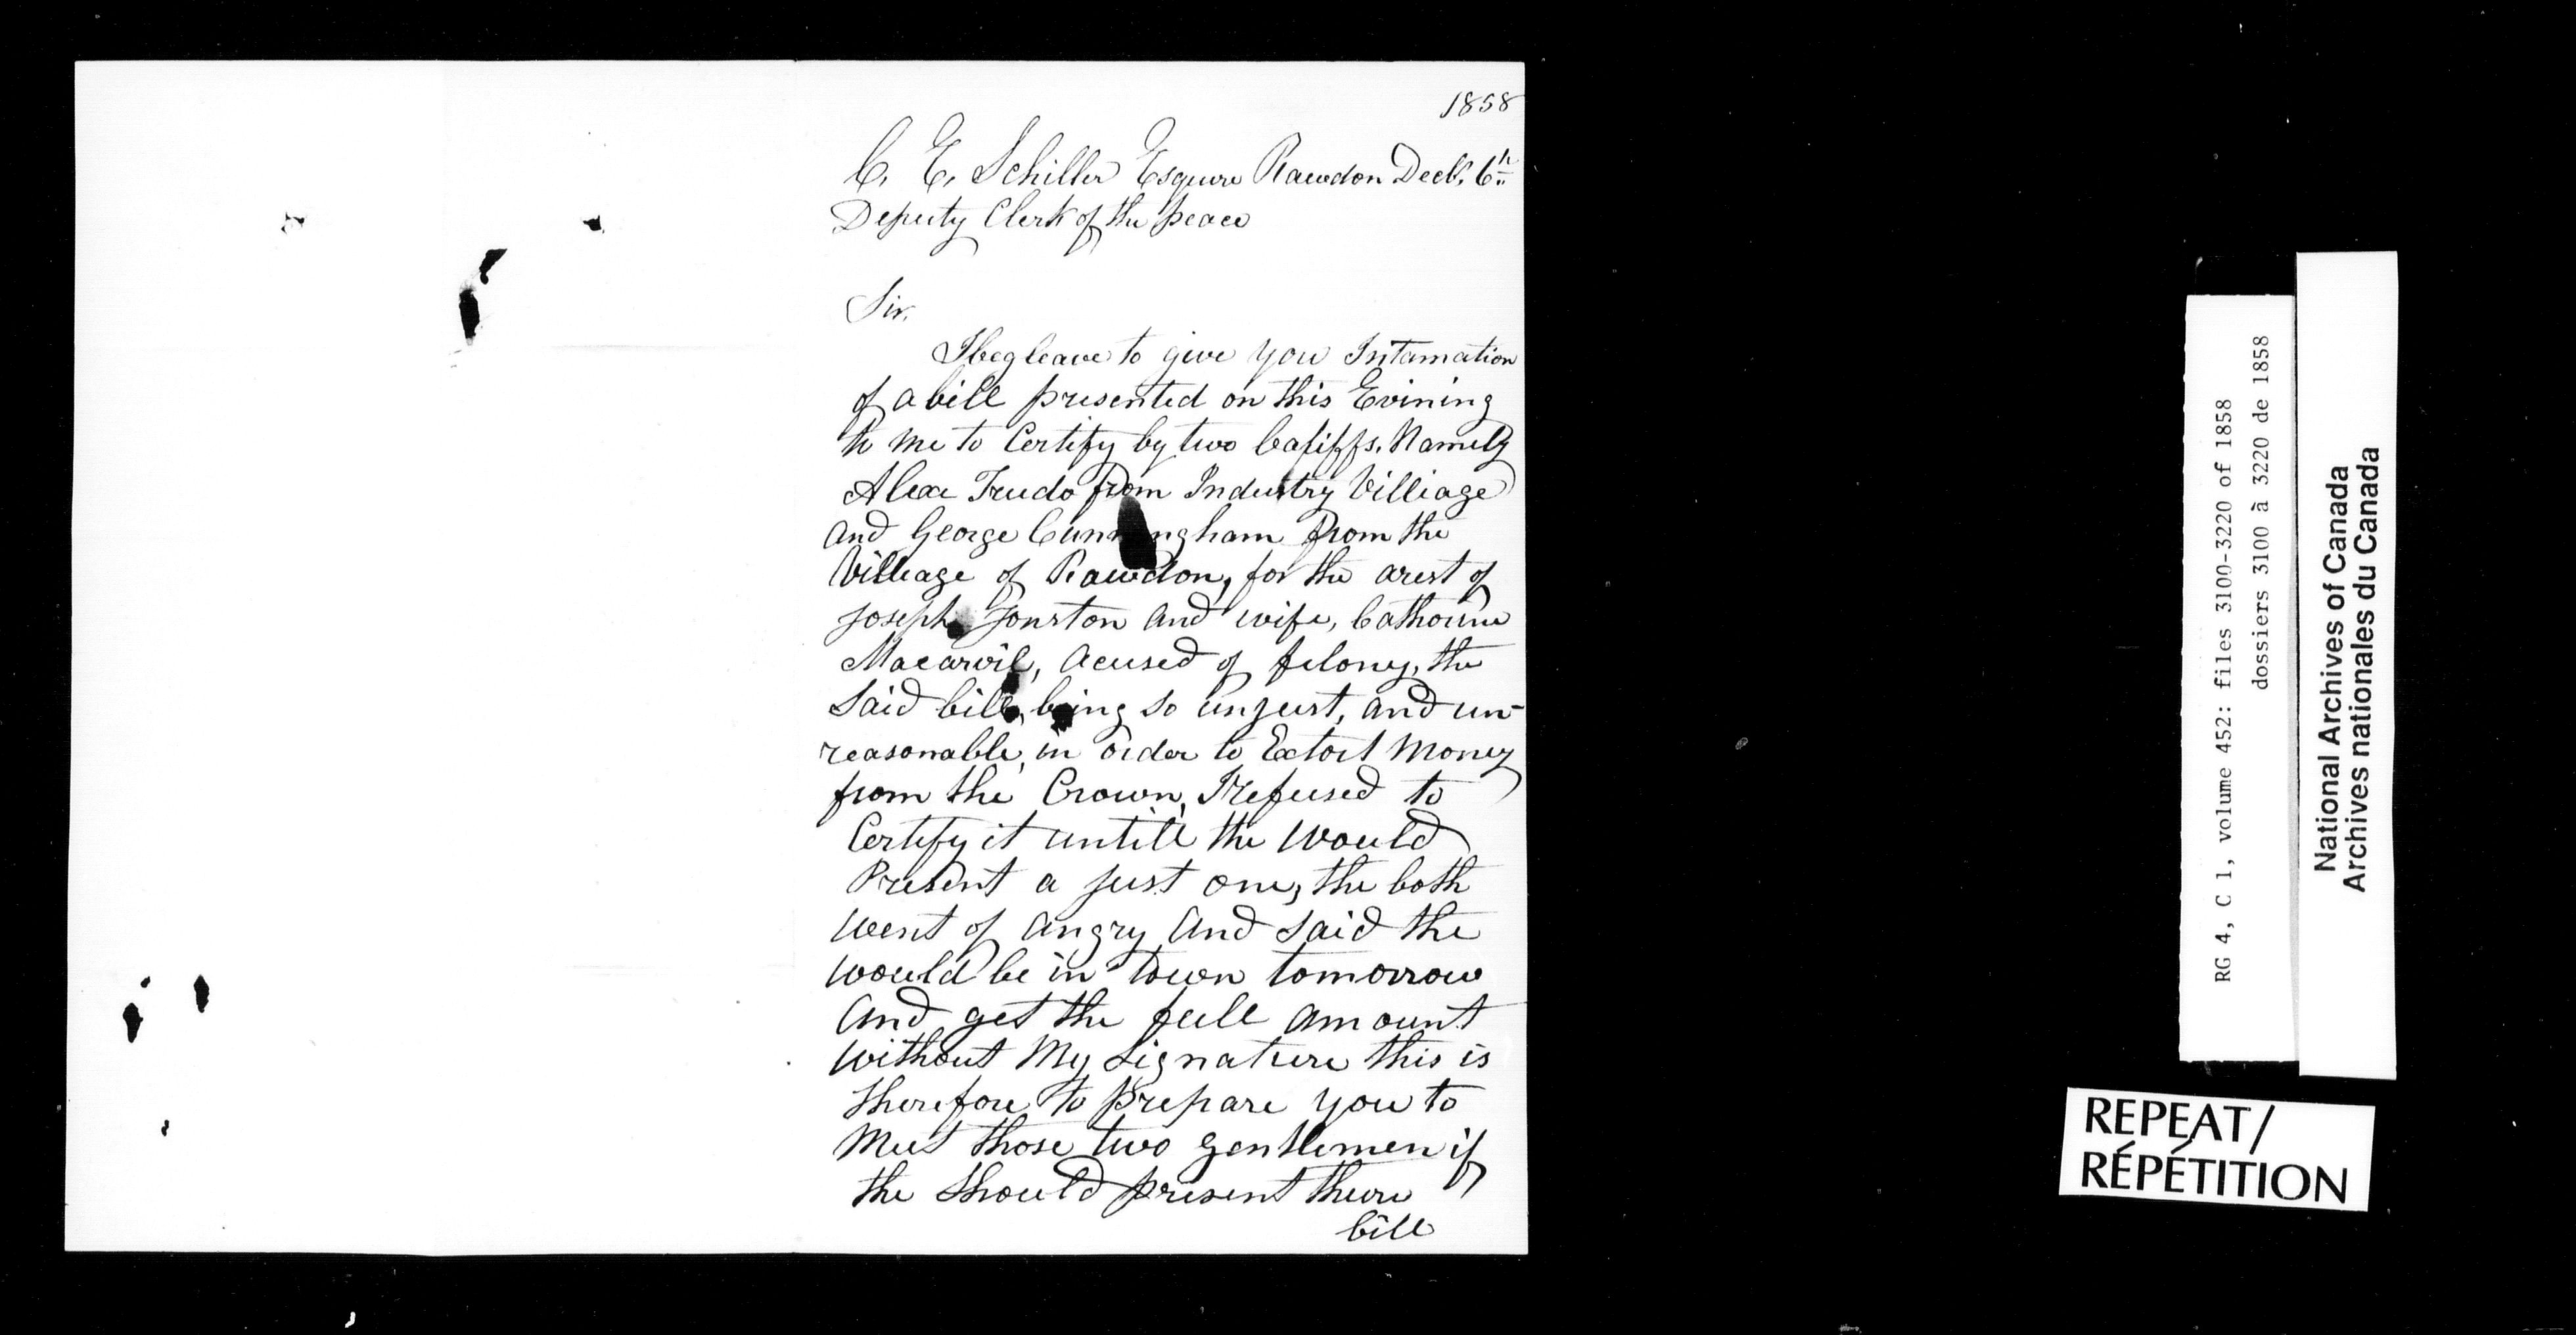 1858
C. E. Schiller Esquire Rawdon Decbr. 6th
Deputy Clerk of the peace
Sir,
I beg leave to give you Intamation
of a bill presented on this Evining
to me to Certify by two bailiffs. Namely
Alex Trudo from Industry Villiage
and George Cunningham from the
Villiage of Rawdon, for the arest of
Joseph Jonston and wife, Cathorine
Macarvil, acused of felony, the
Said bill, being so unjust, and un-
reasonable, in order to Extort Money
from the Crown, I refused to
Certify it untill the would
Present a just one, the both
went of angry and said the
would be in town tomorrow
and get the full amount
without My Signature this is
therefore to prepare you to
Meet those two gentlemen if
the Should present there
bill
RG 4, C 1, volume 452: files 3100-3220 of 1858
dossiers 3100 à 3220 de 1858
National Archives of Canada
Archives nationales du Canada
REPEAT/
RÉPÉTITION